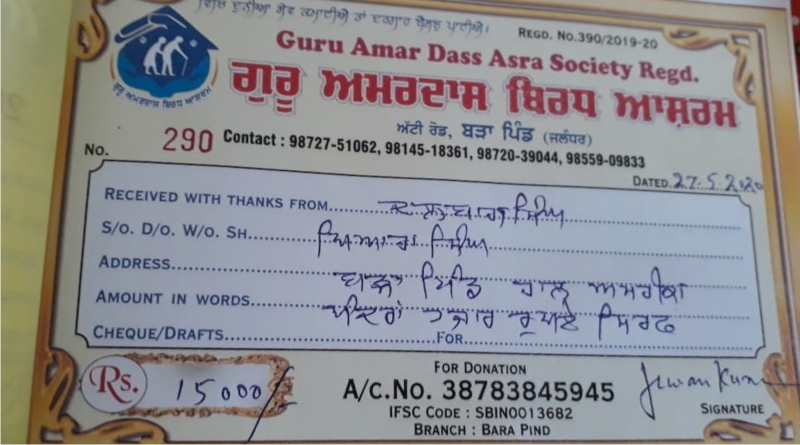 ਵਿਚਿ ਦੁਨੀਆ ਸੇਵ ਕਮਾਈਐ ਤਾ ਦਰਗਹ ਬੈਸਣੁ ਪਾਈਐ।
REGD. NO.390/2019-20
Guru Amar Dass Asra Society Regd.
ਗੁਰੂ ਅਮਰਦਾਸ ਬਿਰਧ ਆਸ਼ਰਮ
ਗੁਰੂ ਅਮਰਦਾਸ ਬਿਰਧ ਆਸ਼ਰਮ
ਅੱਟੀ ਰੋਡ, ਬੜਾ ਪਿੰਡ (ਜਲੰਧਰ)
NO. 290 Contact : 98727-51062, 98145-18361, 98720-39044, 98559-09833
DATED 27.5.2020
RECEIVED WITH THANKS FROM ਸਿੰਘ
S/O. D/O. W/O. SH. ਪਿਆਰਾ ਸਿੰਘ
ADDRESS ਬੜਾ ਪਿੰਡ ਹਾਲ ਅਮਰੀਕਾ
AMOUNT IN WORDS ਪੰਦਰਾਂ ਹਜਾਰ ਰੁਪਏ ਸਿਰਫ
CHEQUE/DRAFTS FOR
Rs. 15000/-
FOR DONATION
A/C.No. 38783845945
IFSC CODE : SBIN0013682
BRANCH : BARA PIND
Jewan Kumar
SIGNATURE